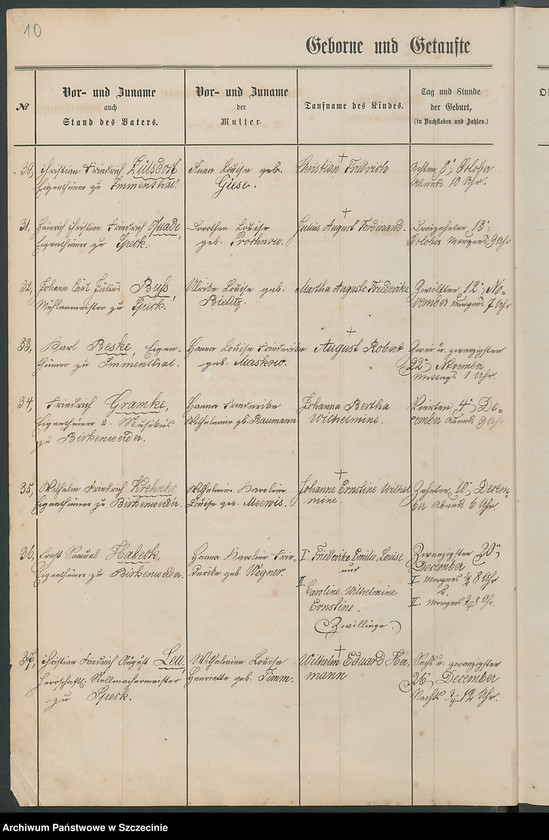 10
Geborne und Getaufte
№
Vor- und Zuname
auch
Stand des Vaters.
Vor- und Zuname
der
Mutter.
Taufname des Kindes.
Tag und Stunde
der Geburt,
(in Buchstaben und Zahlen.)
30, Christian Friedrich Zülsdorf
Eigenthümer zu Immenthal.
Anna Louise geb.
Giese.
Christian Friedrich
Achten 8, October
Abends 10 Uhr.
31, Heinrich Christian Friedrich Quade,
Eigenthümer zu Speck.
Dorothea Louise
geb. Prochnow.
Julius August Ferdinand.
October Morgens 9 Uhr
32, Johann Carl Julius Buss
Mühlenmeister zu Speck.
Louise geb.
Bielitz
Martha Auguste Friederike
Zwölften 12, No-
vember Morgens 7 Uhr
33, Karl Beske, Eigen-
thümer zu Immenthal.
Hanna Louise Friederike
geb. Maskow.
August Robert
Zwei u. zwanzigsten
22, November
Mittags 1 Uhr.
34, Friedrich Gramke,
Eigenthümer u.
zu Birkenwerder.
Hanna Friederike
Wilhelmine gb. Baumann
Johanna Bertha
Wilhelmine.
Vierten 4, De-
cember Abends 9 Uhr.
35, Wilhelm Friedrich
Eigenthümer zu Birkenwerder
Wilhelmine Karoline
Louise geb. Meewis.
Johanne Ernstine Wilhel
mine.
Zehnten 10, Decem-
ber Abends 6 Uhr
36, Ernst Samuel Habeck
Eigenthümer zu Birkenwerder.
Hanna Karoline Frie-
derike geb. Wegner.
I. Friederike Emilie Louise
und
II. Caroline Wilhelmine
Ernstine.
(Zwillinge)
Zwanzigsten 20,
December
I Morgens 1/2 8 Uhr
II. Morgens 3/4 8 Uhr.
37, Christian Friedrich August Leu,
Herrschaftl. Stellmachermeister
zu Speck.
Wilhelmine Louise
Henriette geb. Timm.
Wilhelm Eduard Her
mann
Sechs u. zwanzigsten
26, December
Nachts 12 Uhr.
Archiwum Państwowe w Szczecinie